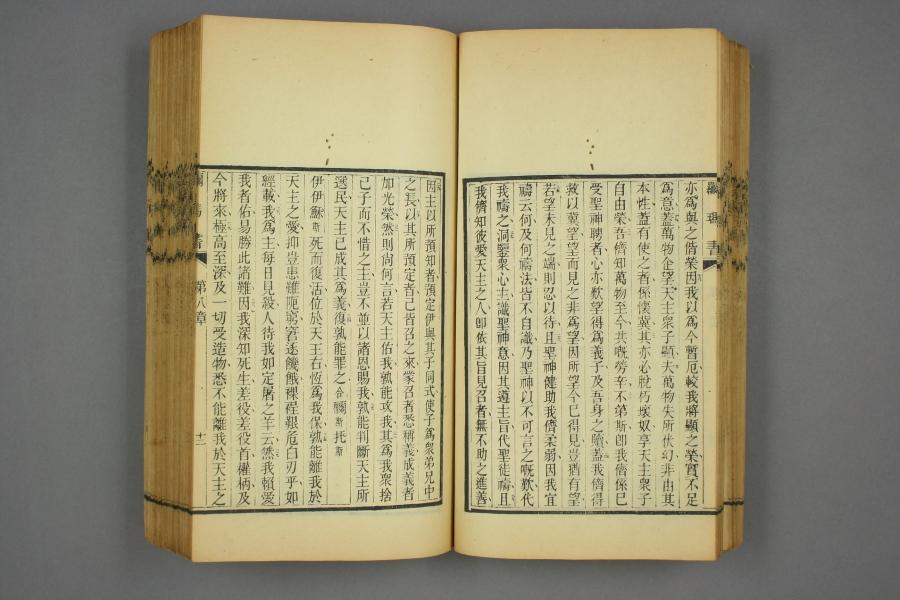 亦爲與之偕榮因我以爲今暫厄較我將顯之榮實不足
爲意蓋萬物企望天主衆子顯夫萬物失所伏幻非由其
本性蓋有使之者係懷冀其亦必脫朽壞奴享天主衆子
自由榮吾儕知萬物至今共嘅勞辛不第斯卽我儕係已
受聖神聘者心亦歎望得爲義子及吾身之贖蓋我儕得
救以冀望望而見之非爲望因所望今已得見豈猶有望
若望未見之端則忍以待且聖神健助我儕柔弱因我宜
禱云何及何禱法皆不自識乃聖神以不可言之嘅歎代
我禱之洞鑒衆心主識聖神意因其遵主旨代聖徒禱且
我儕知彼愛天主之人卽依其旨見召者無不助之進善
因主以所預知者預定伊與其子同式使子爲衆弟兄中
之長以其所預定者已皆召之來蒙召者悉稱義成義者
加光榮然則尙何言若天主佑我孰能攻我其爲我衆捨
己子而不惜之主豈不並以諸恩賜我孰能判斷天主所
選民天主已成其爲義復孰能罪之合爾斯托斯
伊伊穌斯死而復活位於天主右恆爲我保孰能離我於
天主之愛抑豈患難阨窮窘迷饑餓裸裎艱危白刃乎如
經載我爲主每日見殺人待我如定屠之羊云然我賴愛
我者佑易勝此諸難因我深知死生差役首權柄及
今將來極高至深及一切受造物悉不能離我於天主之
第八章
十二